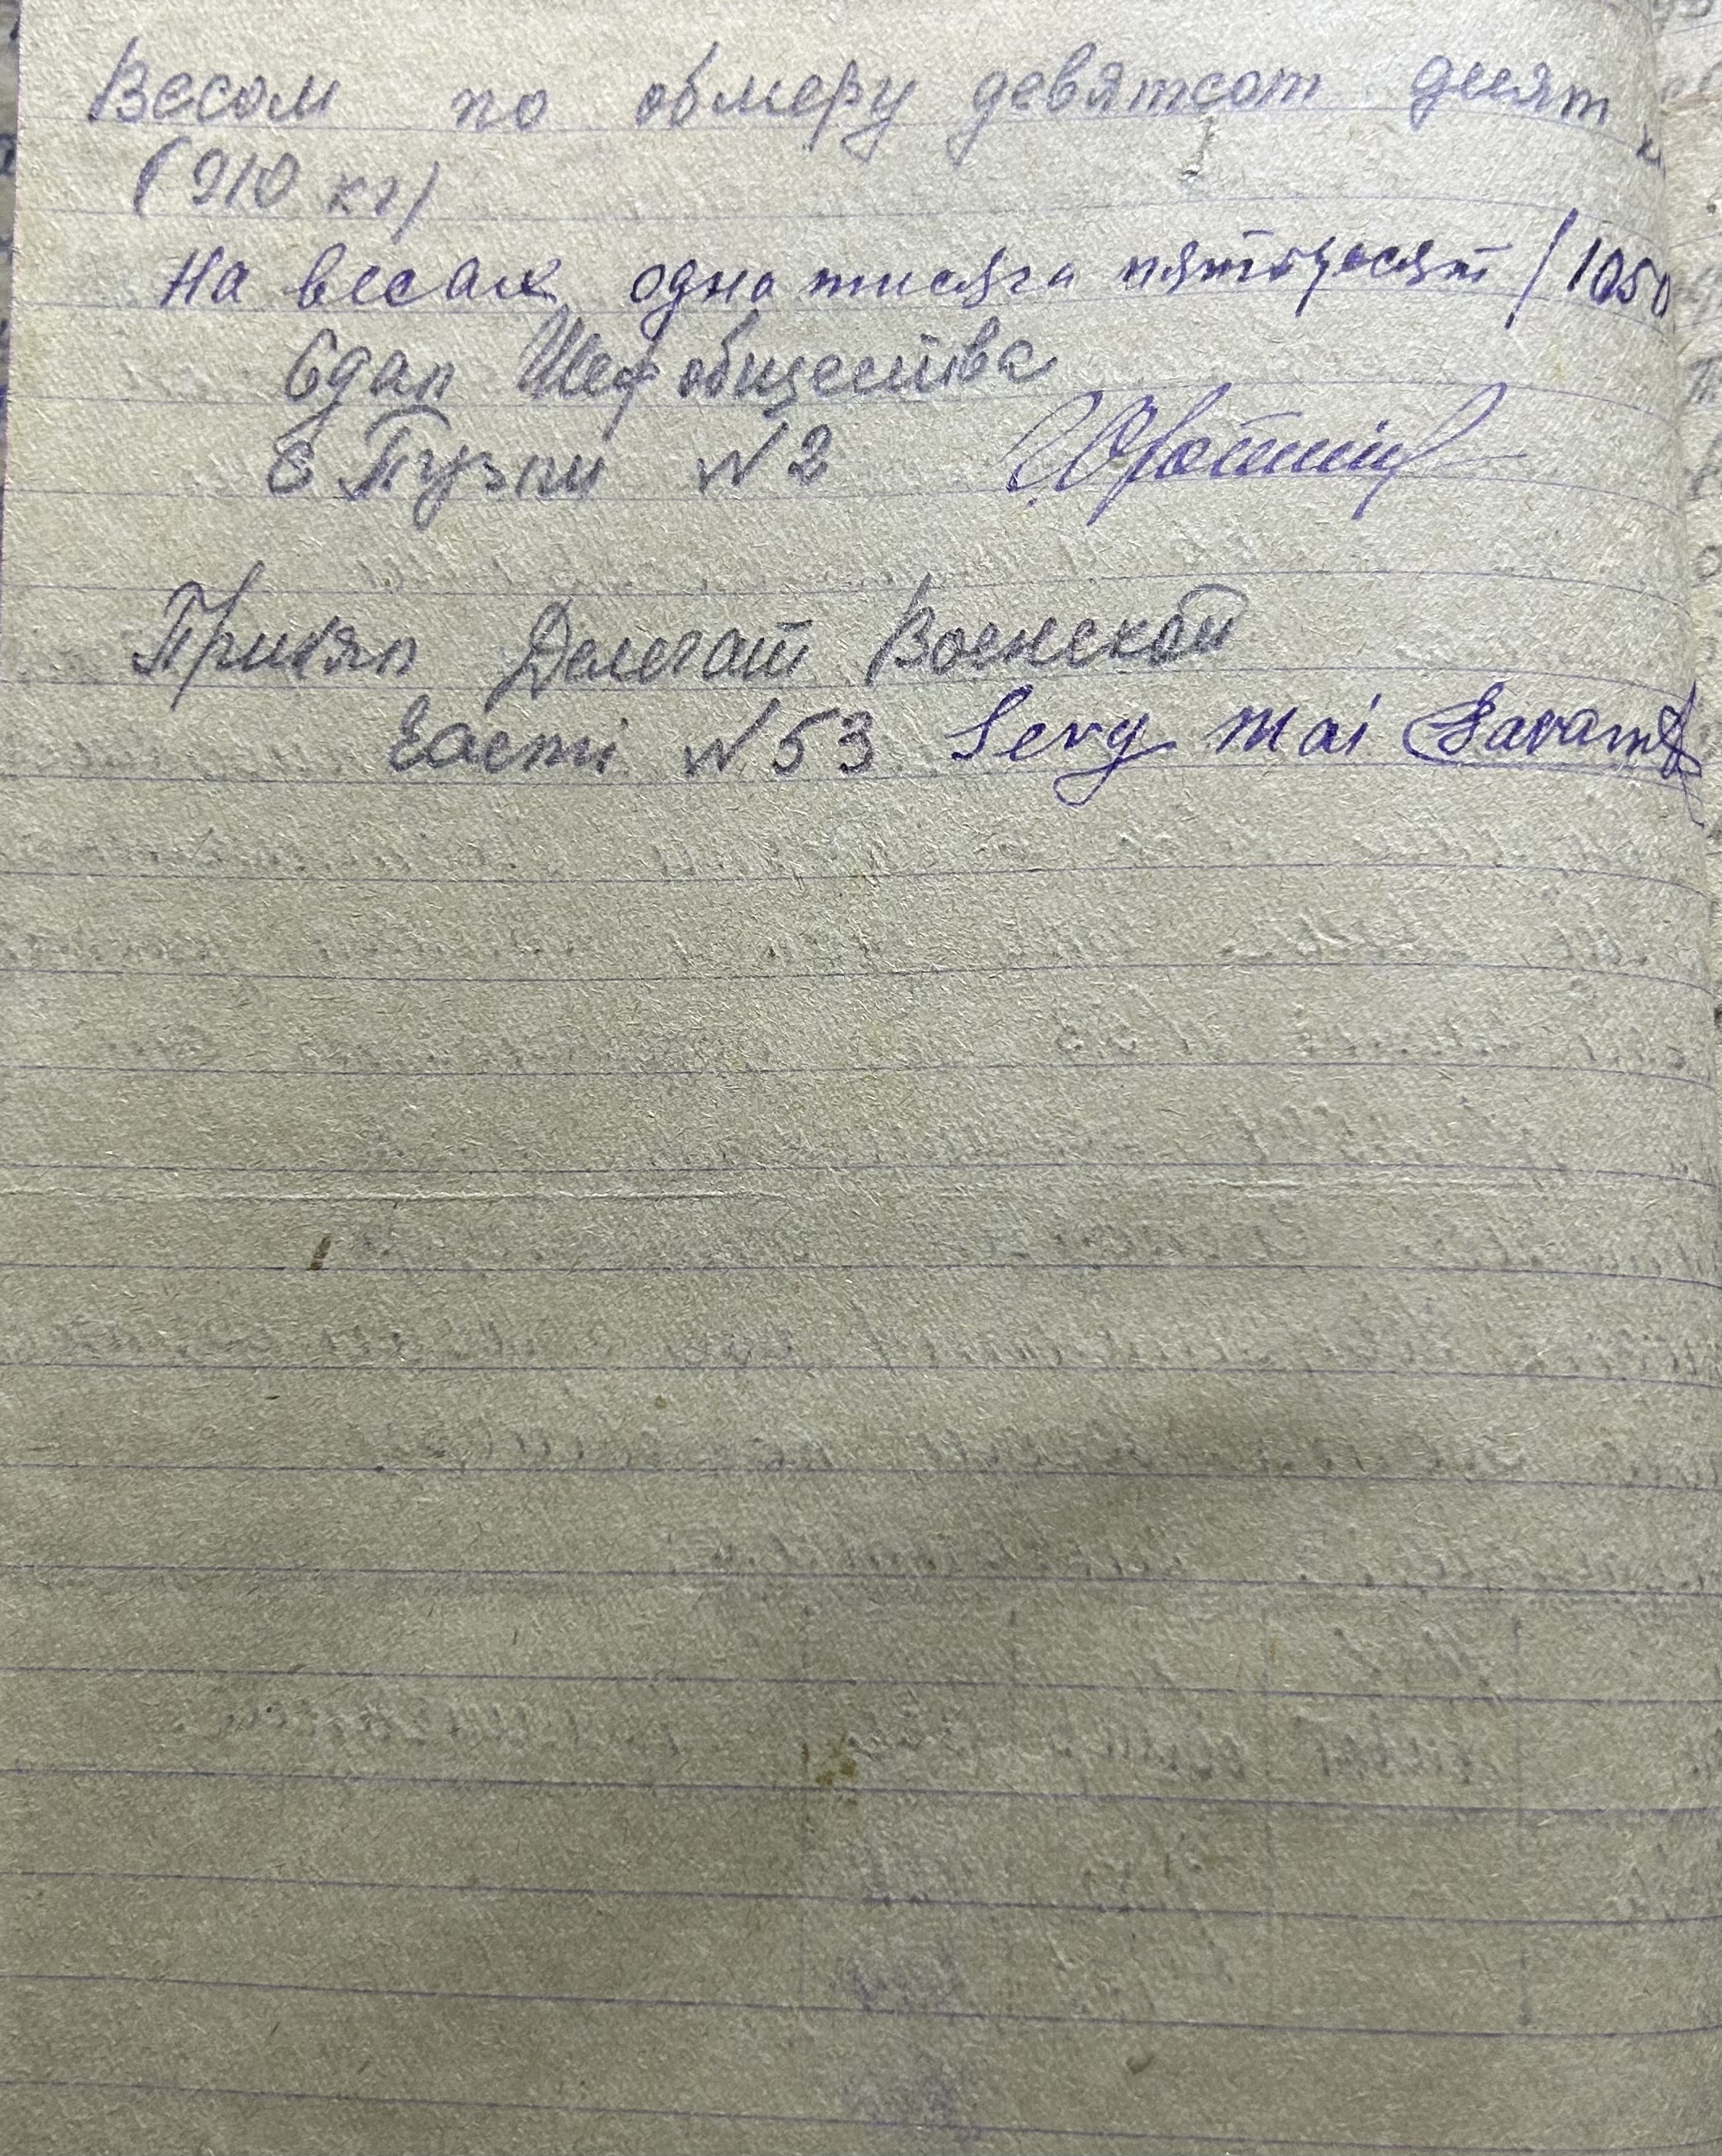 Весом по обмеру девятсот десят
(910 кг)
На весах одна тисяча пятьдесят /1050
Сдал Шеф общества
с Пузли №2
Принял Делегат Воинской
Части №53 Serg mai